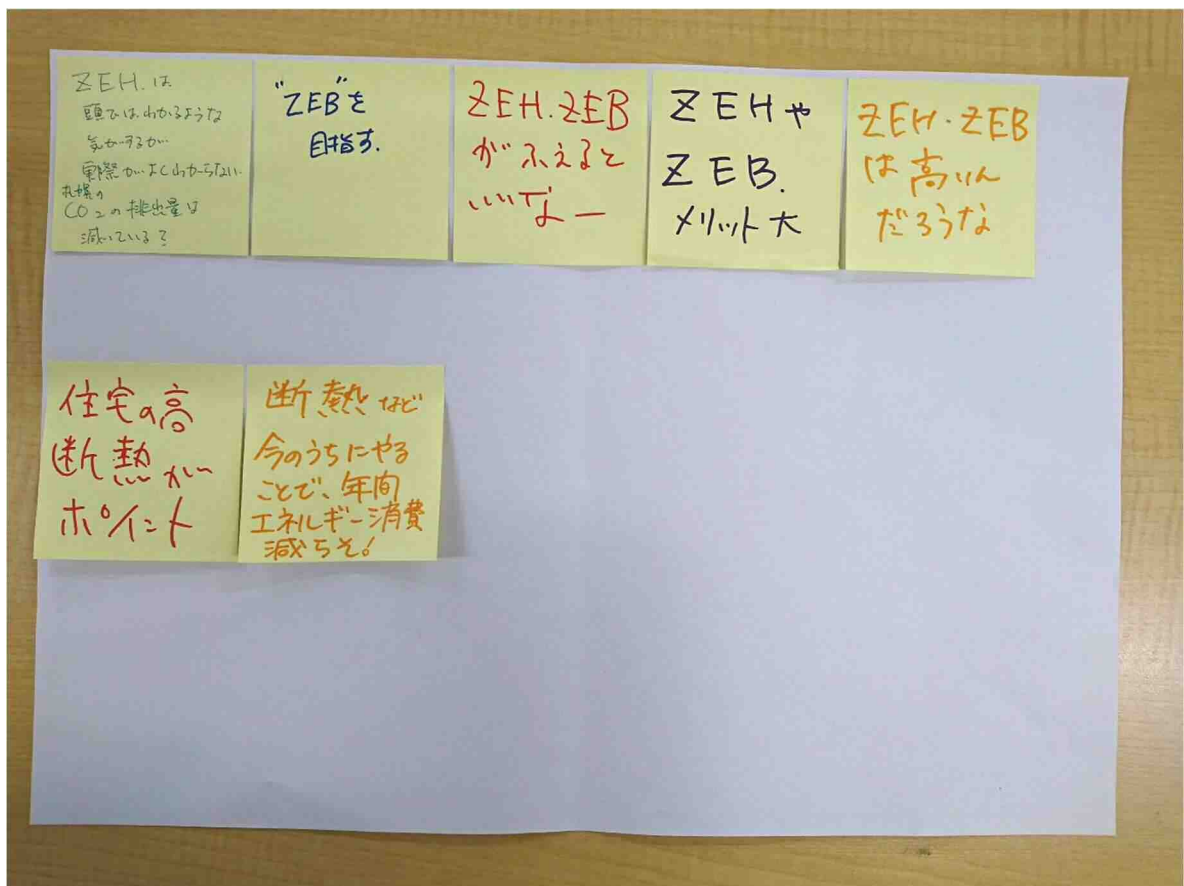 ZEH.は
頭ではわかるような
気がするが
実際がよくわからない.
札幌の
CO2の排出量は
減っている？
"ZEB"を
目指す.
ZEH.ZEB
がふえると
いいなー
ZEHや
ZEB.
メリット大
ZEH・ZEB
は高いん
だろうな
住宅の高
断熱が
ポイント
断熱など
今のうちにやる
ことで、年間
エネルギー消費
減らそ!